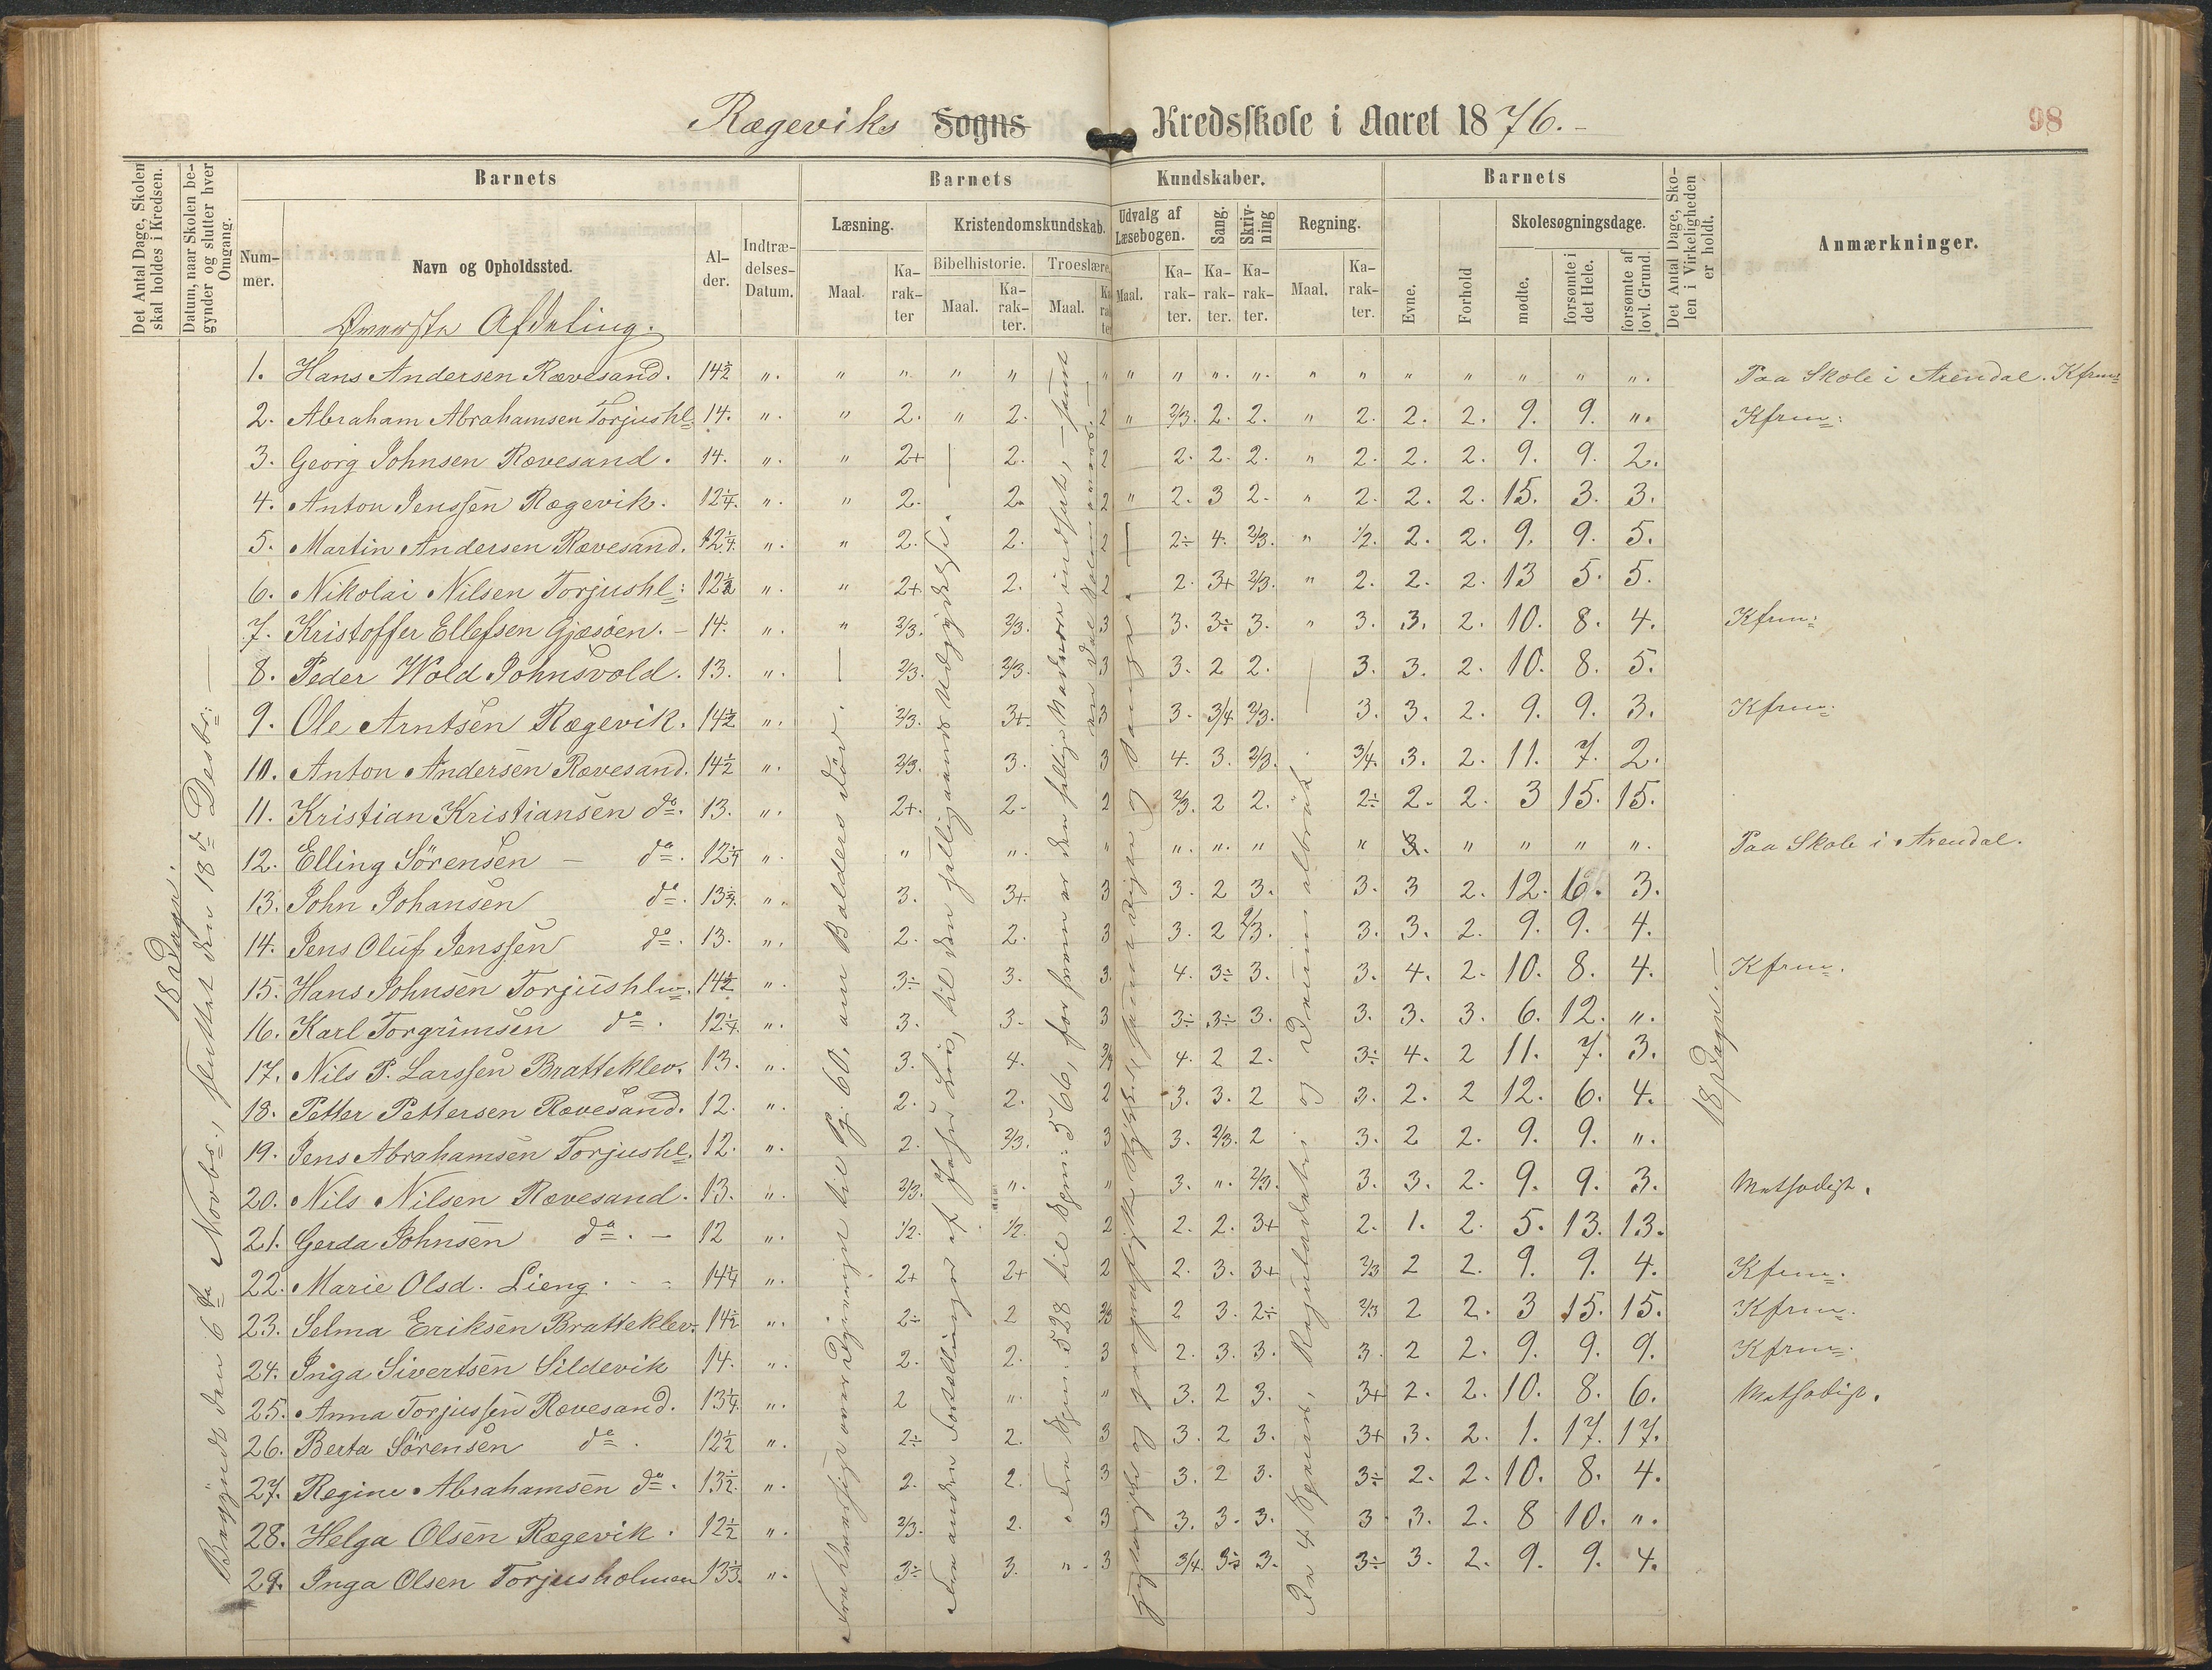 Rægeviks Sogns Kredsskole i Aaret 1876.-
98
Det Antal Dage, Skolen skal holdes i Kredsen.
Datum, naar Skolen begynder og slutter hver Omgang.
Barnets
Barnets Kundskaber.
Barnets
Det Antal Dage, Skolen i Virkeligheden er holdt.
Anmærkninger.
Nummer.
Navn og Opholdssted.
Alder.
Indtrædelses-Datum.
Læsning.
Kristendomskundskab.
Udvalg af Læsebogen.
Sang.
Skrivning
Regning.
Evne.
Forhold
Skolesøgningsdage.
Bibelhistorie.
Troeslære.
Maal.
Karakter
Maal.
Karakter.
Maal.
Karakter
Maal.
Karakter.
Karakter.
Karakter.
Maal.
Karakter.
mødte.
forsømte i det Hele.
forsømte af lovl. Grund.
Øverste Afdeling.
18 Dage.
18 Dage. —
1. Hans Andersen Rævesand. 14½ ". " " " " " " " ". ". " " " " " " ". Paa Skole i Arendal. Kfrm:
2. Abraham Abrahamsen Torjushl: 14. ". " 2. " 2. 2 " 2/3. 2. 2. " 2. 2. 2. 9. 9. ". Kfrm:
3. Georg Johnsen Rævesand. 14. ". " 2+ 2. 2 2. 2. 2. " 2. 2. 2. 9. 9. 2.
4. Anton Jenssen Rægevik. 12¼. ". " 2. 2. 2 " 2. 3 2. " 2. 2. 2. 15. 3. 3.
5. Martin Andersen Rævesand. 12¼. ". " 2. 2. 2 2÷ 4. 2/3. " 1/2. 2. 2. 9. 9. 5.
6. Nikolai Nilsen Torjushl: 12½ ". " 2+ 2. 2 2. 3+ 2/3. " 2. 2. 2. 13 5. 5.
7. Kristoffer Ellefsen Gjæsøen. - 14. ". " 2/3. 2/3. 3 3. 3÷ 3. " 3. 3. 2. 10. 8. 4. Kfrm:
8. Peder Wold Johnsvold. 13. ". 2/3. 2/3. 3 3. 2 2. 3. 3. 2. 10. 8. 5.
9. Ole Arntsen Rægevik. 14½ ". 2/3. 3+ 3 3. 3/4 2/3. 3. 3. 2. 9. 9. 3. Kfrm:
10. Anton Andersen Rævesand. 14½ ". 2/3. 3. 3 4. 3. 2/3. 3/4. 3. 2. 11. 7. 2.
11. Kristian Kristiansen do. 13. ". 2+. 2. 2 2/3. 2 2. 2÷ 2. 2. 3 15. 15.
12. Elling Sörensen - do. 12¼ ". " ". " ". ". " " 3. " " " ". Paa Skole i Arendal.
13. John Johansen do. 13¾. ". 3. 3+. 3 3. 2 3. 3. 3 2. 12. 6. 3.
14. Jens Oluf Jenssen do. 13. ". 2. 2. 3 3. 2 2/3. 3. 3. 2. 9. 9. 4.
15. Hans Johnsen Torjushlm. 14½. ". 3÷ 3. 3. 4. 3÷ 3. 3. 4. 2. 10. 8. 4. Kfrm.
16. Karl Torgrimsen do. 12¼. ". 3. 3. 3 3÷ 3÷ 3. 3. 3. 3. 6. 12. ".
17. Nils P. Larssen Bratteklev. 13. ". 3. 4. 3/4 4. 2 2. 3÷ 4. 2 11. 7. 3.
18. Petter Pettersen Rævesand. 12. ". 2. 2. 2 3. 3. 2 3. 2. 2 12. 6. 4.
19. Jens Abrahamsen Torjushl. 12. ". 2. 2/3. 3 3. 2/3. 2 3. 2 2. 9. 9. ".
20. Nils Nilsen Rævesand. 13. ". 2/3. ". " 3. ". 2/3. 3. 3. 2. 9. 9. 3. Methodist.
21. Gerda Johnsen do. - 12 ". 1/2. 1/2. 2 2. 2. 3+ 2. 1. 2. 5. 13. 13.
22. Marie Olsd. Lieng. 14¼ ". 2+ 2+ 2 2. 3. 3+ 2/3 2 2. 9. 9. 4. Kfrm.
23. Selma Eriksen Bratteklev. 14½ ". 2÷ 2 2/3 2 3. 2÷ 2/3 2 2. 3 15. 15. Kfrm.
24. Inga Sivertsen Sildevik 14. ". 2. 2. 3 2. 3. 3. 3. 2 2. 9. 9. 9. Kfrm:
25. Anna Torjussen Rævesand. 13¼. ". 2 ". " 3. 2 3. 3+ 2. 2. 10. 8. 6. Methodist.
26. Berta Sörensen do. 12½ ". 2÷ 2. 3 3. 2 3. 3+ 3. 2. 1. 17. 17.
27. Regine Abrahamsen do. 13½. ". 2. 2. 3 3. 2 3. 3÷ 2. 2. 10. 8. 4.
28. Helga Olsen Rægevik. 12½ ". 2/3. 2. 3 3. 3. 3. 3 3. 2. 8 10. ".
29. Inga Olsen Torjusholmen 13½. ". 3÷ 3. ". 3 3/4. 3÷ 3. 3÷ 3. 2. 9. 9. 4.
Begyndt den 6te Novbr., sluttet den 18de Desbr: —
til Pg. 60. om Balders död.
Fra anden Fortællinger af Jesu Liv, til den Helligaands Udgydelse.
Fra Spm: 528 til Spm: 566,
De 4 Spec. Reguladetri og Decimalbrök